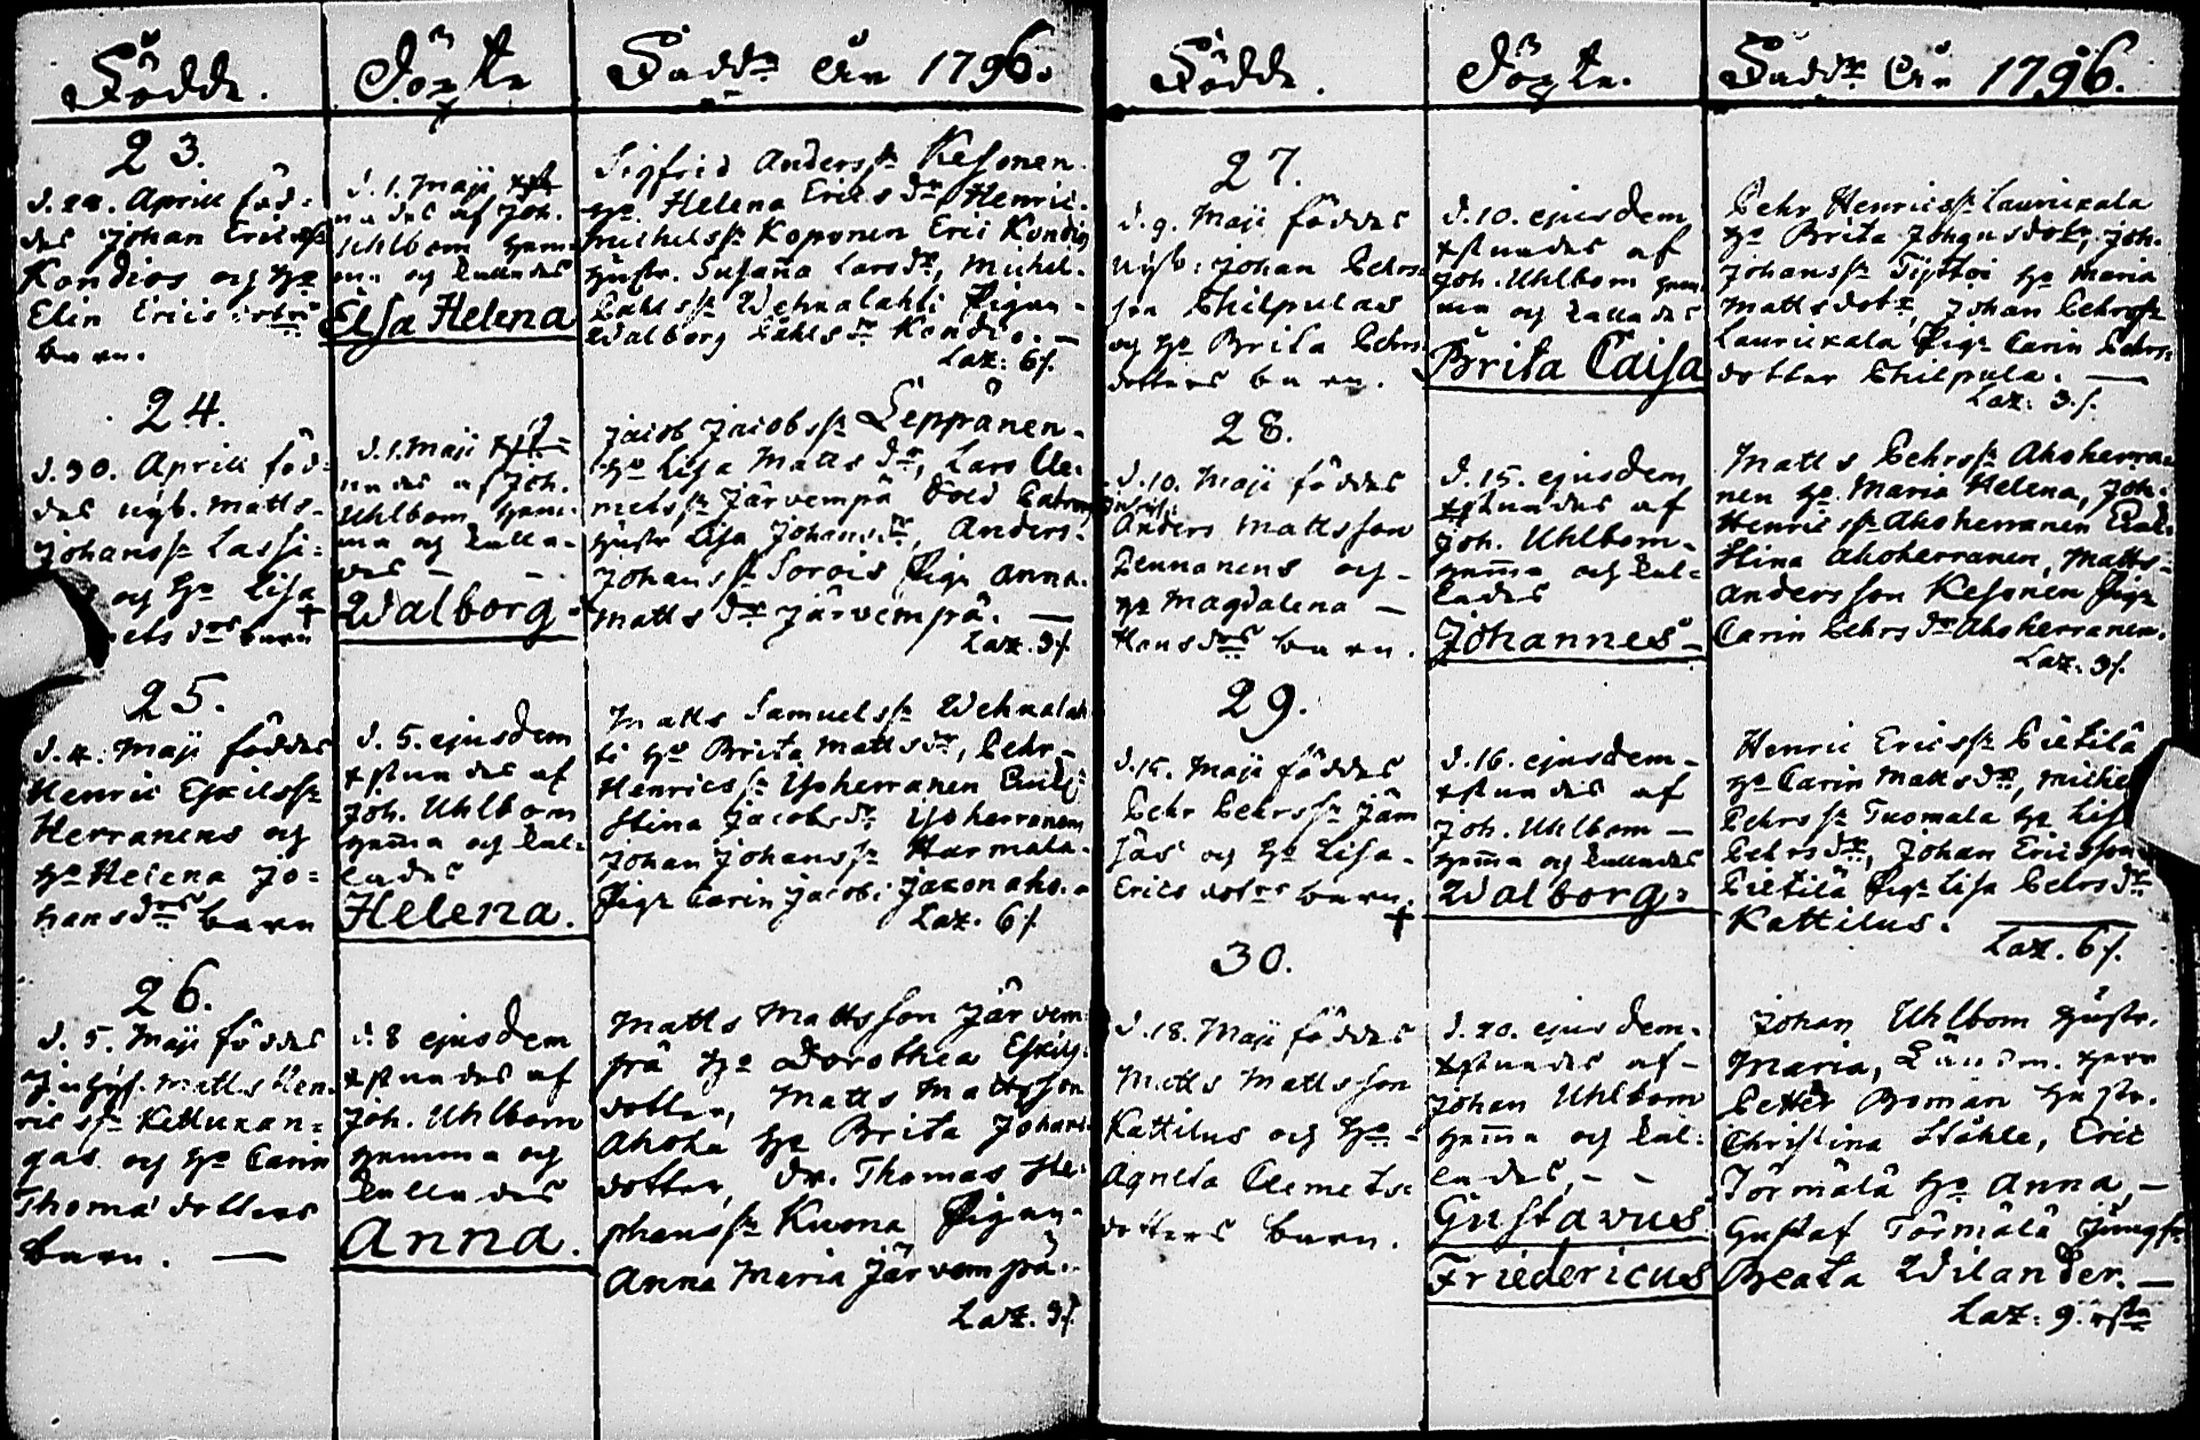 Födde.
Döpte
Faddr År 1796.
23.
d. 24. Aprill föd-
des Johan Ericss
Kondios og ho
Elin Ericsdotrs
barn.
d. 1. Maji xst
nades af Joh.
Uhlbom hem-
ma og kallades
Elsa Helena
Sigfrid Anderssn Kesonen
ho Helena Ericsdr Henric
Michelssn Koponen Eric Kondig
hustr. Susanna Larsdr, Michel
Pahlssn Wehnalahti Pigan
Walborg Pahlsdr Kondio. —
Lax: 6/.
24.
d. 30. Aprill föd-
des nyb. Matts
Johanssn Lassi-
og ho Lisa
nets drs barn +
d. 1. Maji xst-
nades af Joh.
Uhlbom hem-
ma og kalla-
des - -
Walborg
Jacob Jacobssn Leppänen
ho Lisa Mattsdr, Lars Cle-
metssn Järvempä Sold
hustr Lisa Johansdr, Anders
Johanssn Sorois Pign Anna
Mattsdr Järvempä. —
Lax. 3/.
25.
d. 4. Maji föddes
Henric Eskilssn
Herranens og
ho Helena Jo-
hansdrs barn
d. 5. ejusdem
xstnades af
Joh. Uhlbom
hemma og kal-
lades
Helena.
Matts Samuelssn Wehnalah
ti ho Brita Mattsdr, Pehr
Henricssn Isoherranen
Stina Jacobsdr Isoherranen
Johan Johanssn Harmala
Pign Carin Jacobs Jakonaho.
Lax. 6/.
26.
d. 5. Maji föddes
Inhys. Matts Hen-
ricssn Kettukan-
gas og ho Carin
Thomä dotters
barn. —
d. 8 ejusdem
xstnades af
Joh. Uhlbom
hemma og
kallades
Anna.
Matts Mattsson Järvem
pä ho Dorothea Eskils-
dotter, Matts Mattsson
Ahola ho Brita Johans
dotter, Dr. Thomas Ste-
phanssn Kuona Pigan
Anna Maria Järvempä.
Lax. 3/.
Födde.
Döpte.
Faddr År 1796.
27.
d. 9. Maji föddes
nyb: Johan Pehrs-
son Philpulas
og ho Brita Pehrs-
dotters barn.
d. 10. ejusdem
xstnades af
Joh. Uhlbom hem
ma og kallades
Brita Caisa
Pehr Henricssn Laurikala
ho Brita Johansdotr, Joh.
Johanssn Työttöi ho Maria
Mattsdotr, Johan Pehrssn
Laurikala Pign Carin Pehrs-
dotter Philpula. —
Lax. 3/.
28.
d. 10. Maji föddes
Inhys.
Anders Mattsson
Pennanens og -
ho Magdalena —
Hansdrs barn.
d. 15. ejusdem
xstnades af
Joh. Uhlbom-
hemma og kal-
lades
Johannes -
Matts Pehrssn Ahoherra-
nen ho Maria Helena, Joh.
Henricssn Ahoherranen
Stina Ahoherranen, Matts
Andersson Kesonen Pign
Carin Pehrsdr Ahoherranen.
Lax. 3/.
29.
d. 15. Maji föddes
Pehr Pehrssn Jäm
säs og ho Lisa
Ericsdotrs barn. +
d. 16. ejusdem-
xstnades af
Joh. Uhlbom —
hemma og kallades
Walborg:
Henric Ericssn Pietilä
ho Carin Mattsdr, Michel
Pehrssn Tuomala ho Lis
Pehrsdr, Johan Ericsson
Pietilä Pign Lisa Pehrsdr
Kattilus. —
Lax. 6/.
30.
d. 18. Maji föddes
Matts Mattsson
Kattilus og ho -
Agneta Clemets-
dotters barn.
d. 20. ejusdem.
xstnades af -
Johan Uhlbom
hemma og kal-
lades, - -
Gustavus
Friedericus
Johan Uhlbom hustr.
Maria, Länsm. herr
Petter Boman hustr.
Christina Ståhle, Eric
Törmälä ho Anna, —
Gustaf Törmälä Jungfr
Beata Wilander. —
Lax: 9. rst